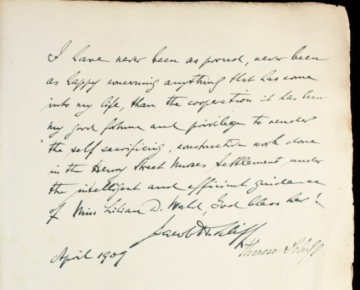 I have never been as proud, never been
as happy concerning anything that has come
into my life, than the cooperation it has been
my good fortune and privilege to render
the self sacrificing, constructive work done
in the Henry Street Nurses Settlement under
the intelligent and efficient guidance
of Miss Lillian D. Wald, God bless her!
Jacob H. Schiff
Therese Schiff
April 1909